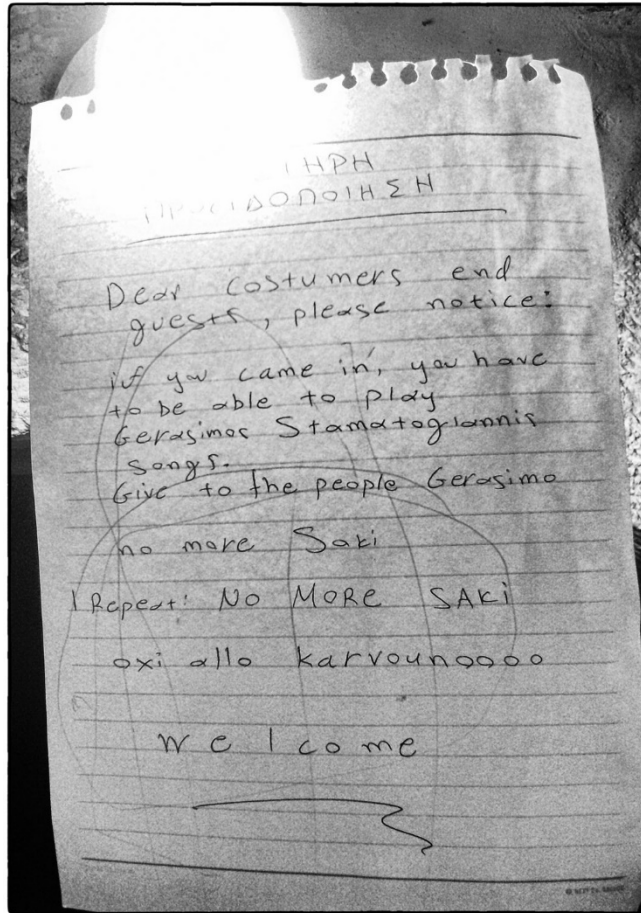 ΠΡΟΕΙΔΟΠΟΙΗΣΗ
Dear costumers end
guests, please notice:
if you came in, you have
to be able to play
Gerasimos Stamatogiannis
songs.
Give to the people Gerasimo
no more Saki
I Repeat: NO MORE SAKI
oxi allo karvounoooo
welcome